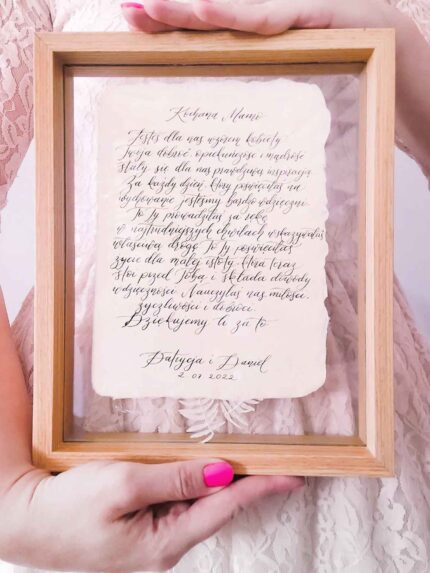 Kochana Mamo
Jesteś dla nas wzorem kobiety
Twoja dobroć opiekuńczość i mądrość
stały się dla nas prawdziwą inspiracją
Za każdy dzień, który poświęciłaś na
wychowanie jesteśmy bardzo wdzięczni
To Ty prowadziłaś za rękę
w najtrudniejszych chwilach wskazywałaś
właściwą drogę To Ty poświęciłaś
życie dla małej istoty, która teraz
stoi przed Tobą i składa dowody
wdzięczności Nauczyłaś nas miłości,
życzliwości i dobroci.
Dziękujemy Ci za to
Patrycja i Daniel
2.07.2022